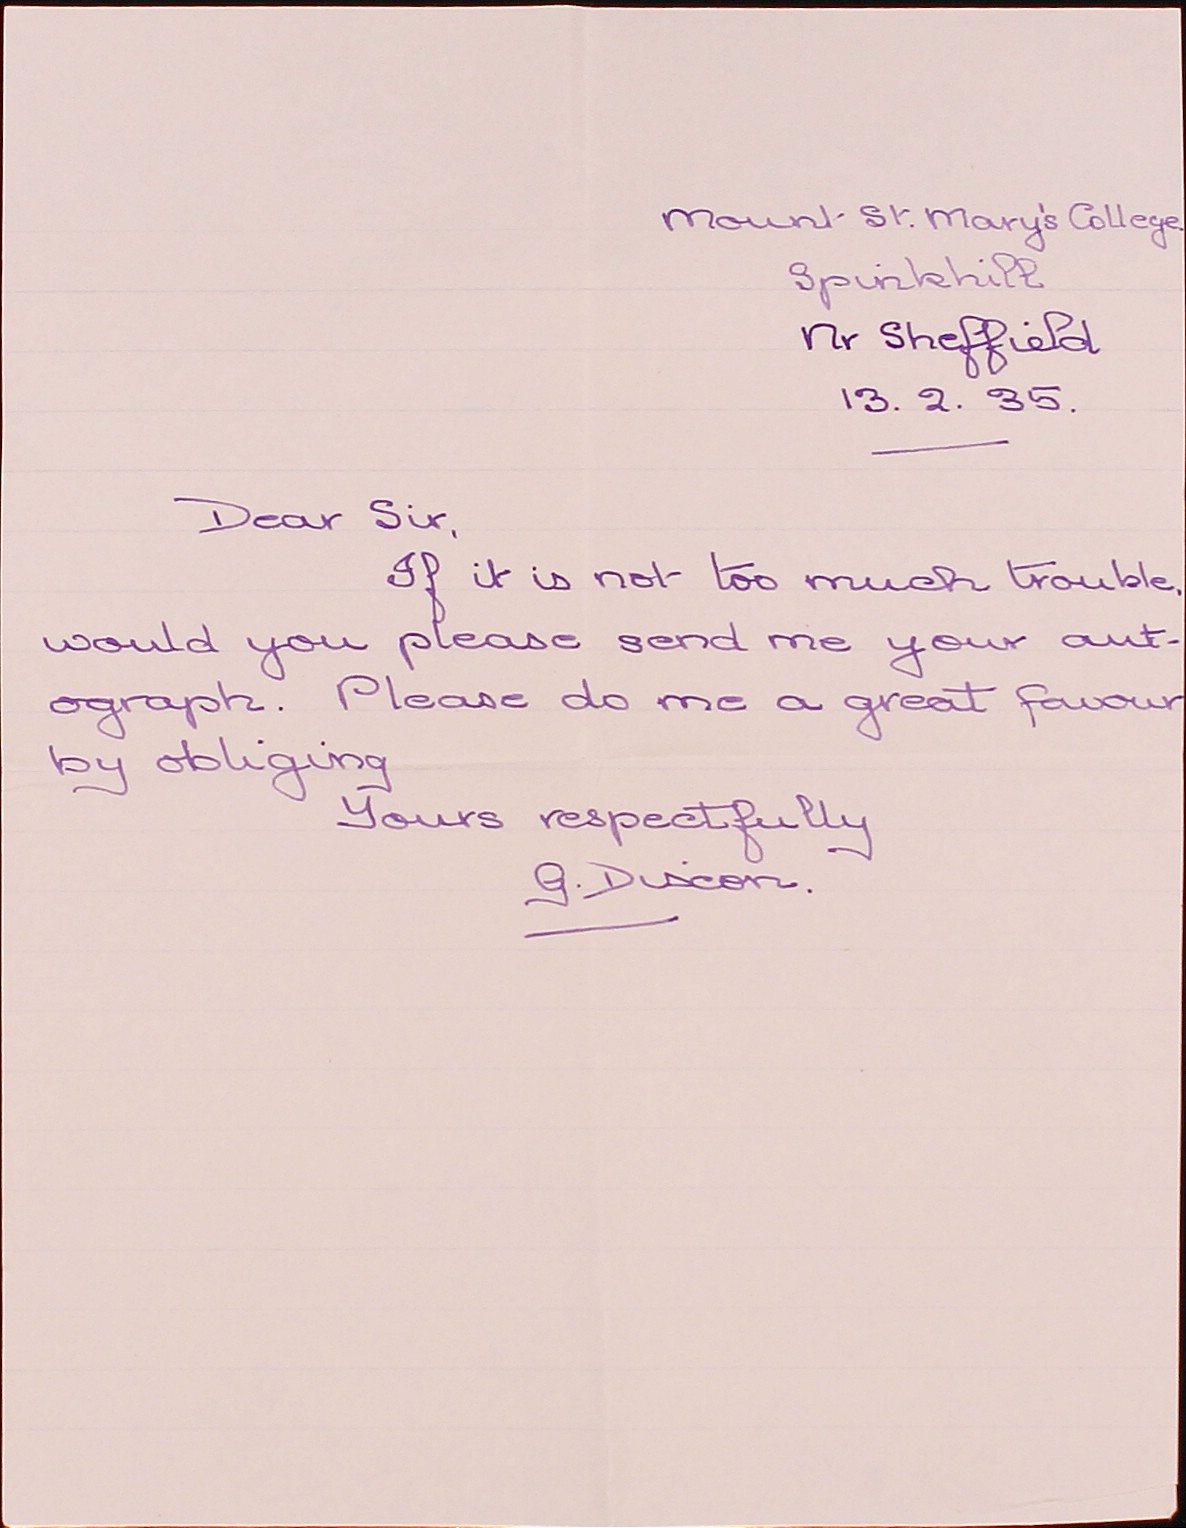 Mount St. Mary's College
Spinkhill
Nr Sheffield
13. 2. 35.
Dear Sir,
If it is not too much trouble,
would you please send me your aut-
ograph. Please do me a great favour
by obliging
Yours respectfully
G.